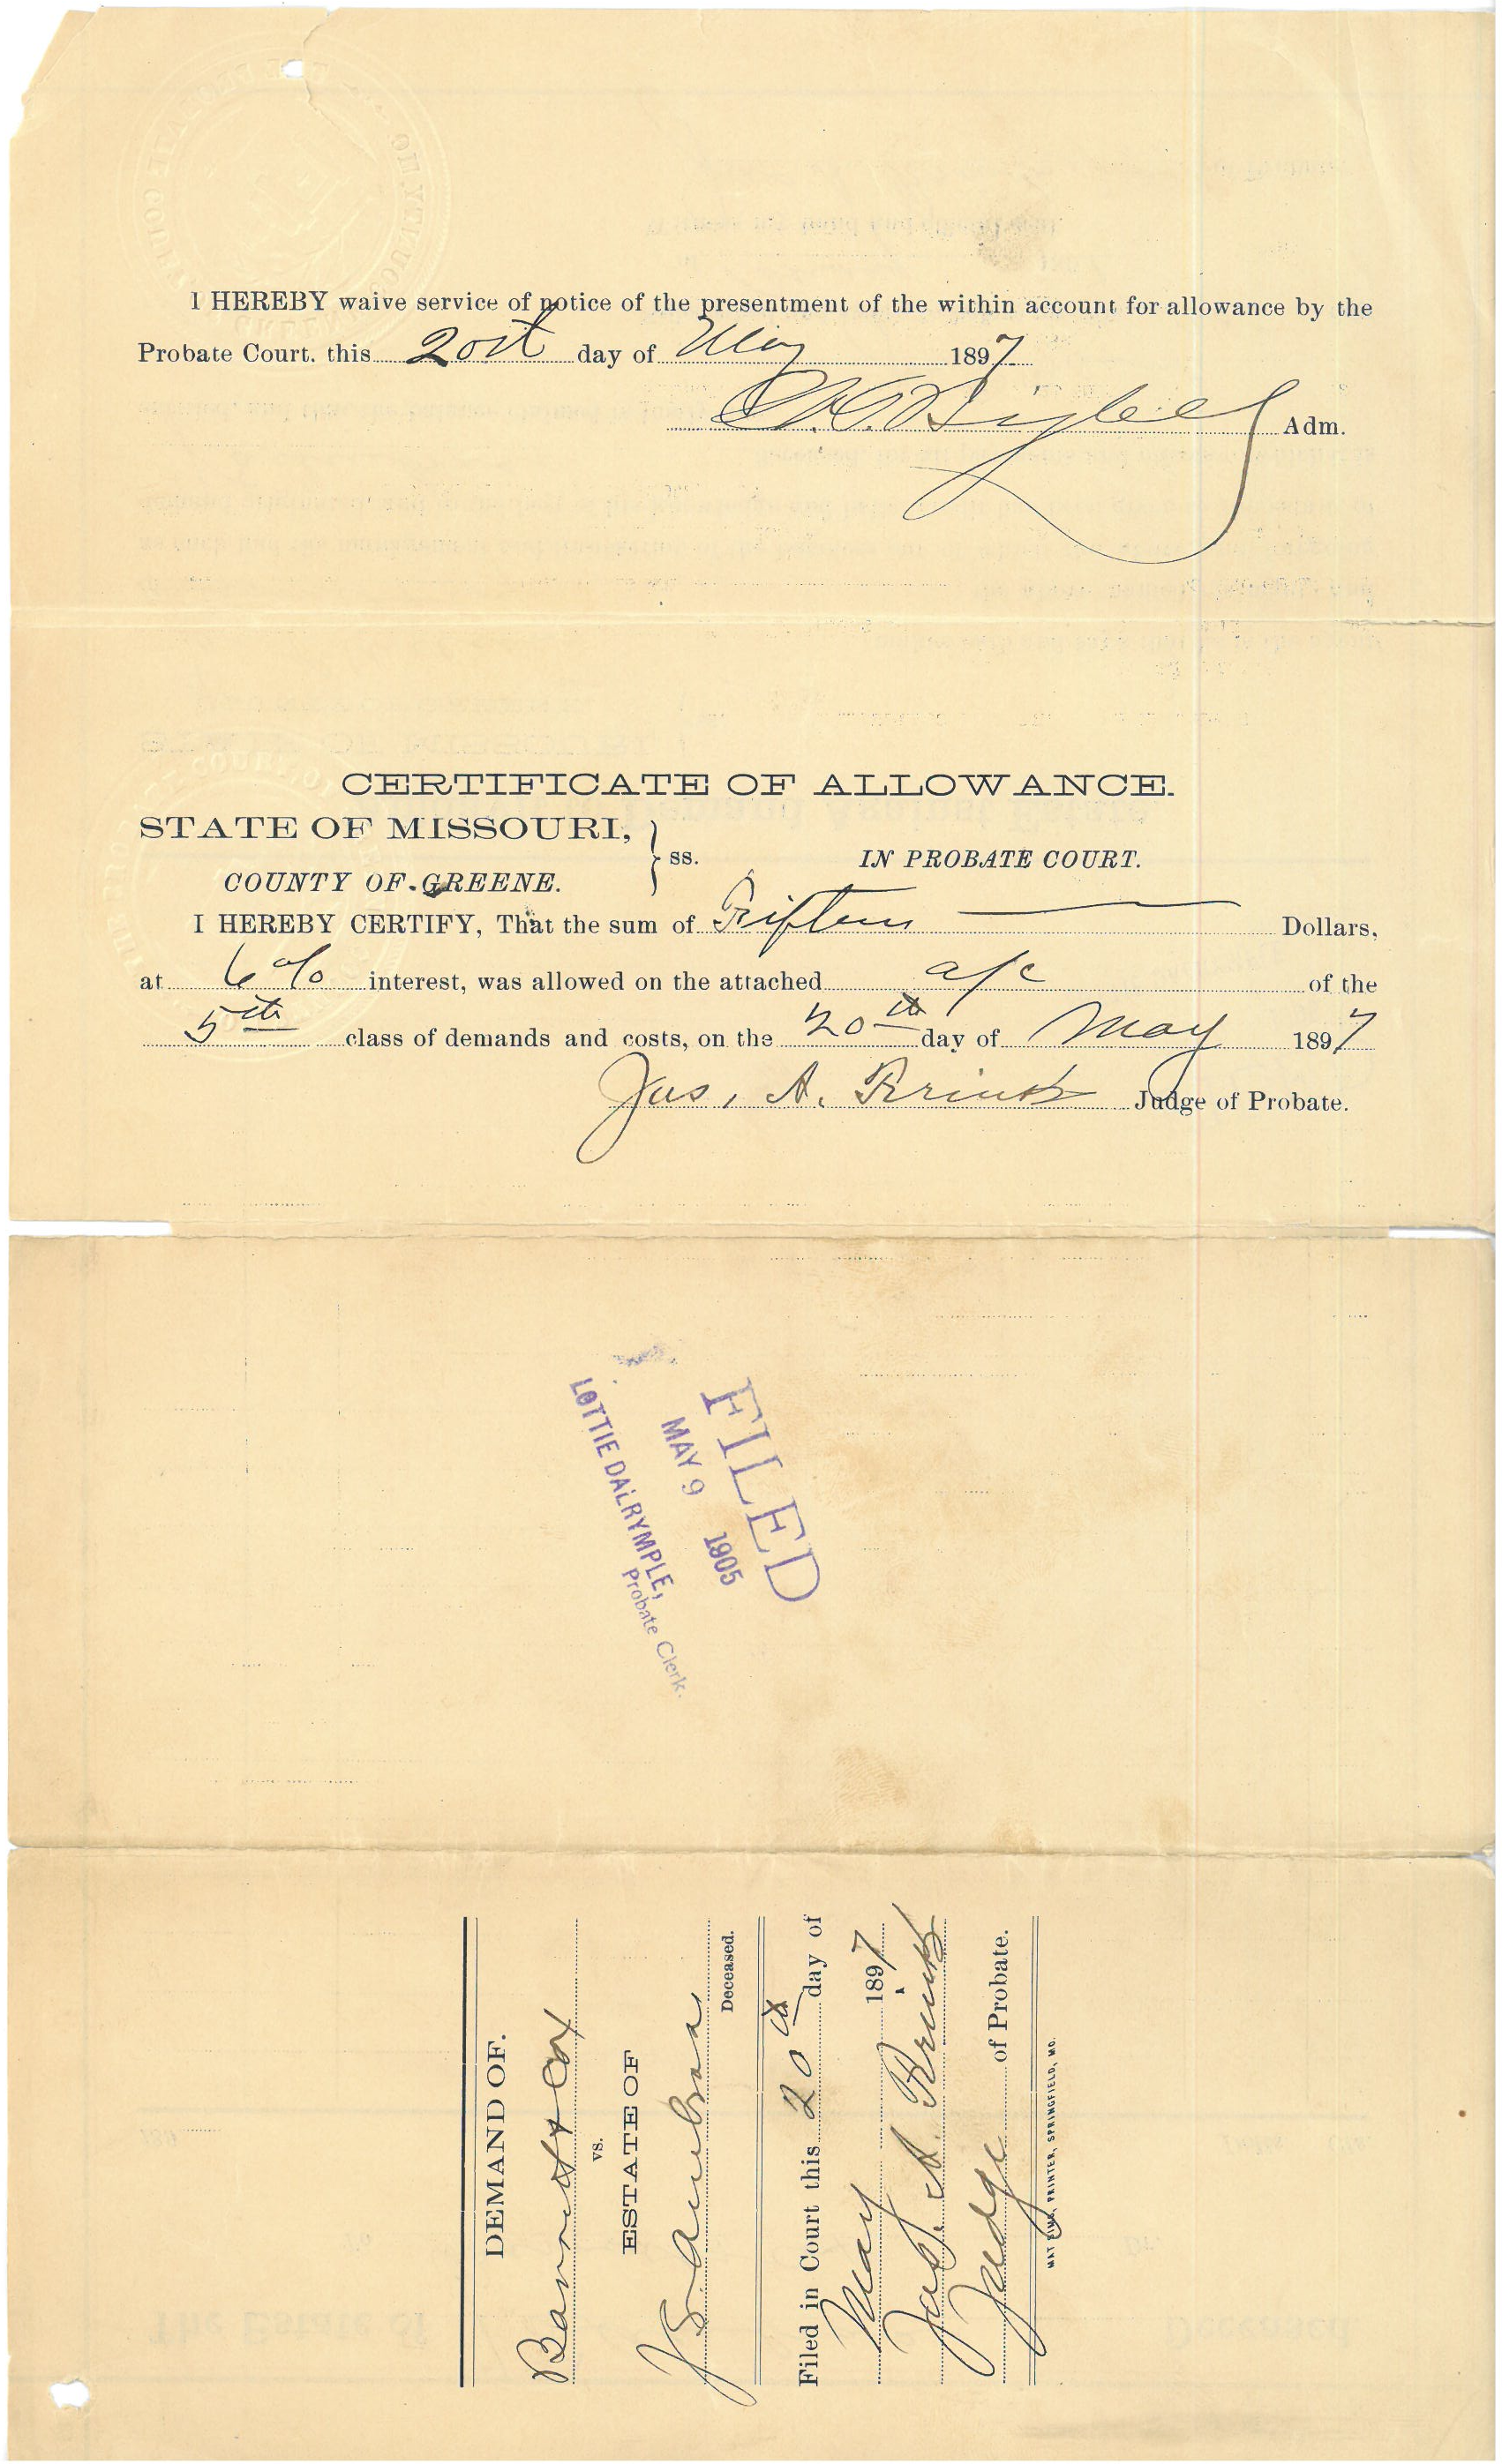 I HEREBY waive service of notice of the presentment of the within account for allowance by the
Probate Court. this 20th day of May 1897
Adm.
CERTIFICATE OF ALLOWANCE.
STATE OF MISSOURI,
COUNTY OF GREENE.
} ss.
IN PROBATE COURT.
I HEREBY CERTIFY, That the sum of Fifteen Dollars,
at 6% interest, was allowed on the attached a/c of the
5th class of demands and costs, on the 20th day of May 1897
Jas. A. Judge of Probate.
FILED
MAY 9 1905
LOTTIE DALRYMPLE,
Probate Clerk.
DEMAND OF.
& Cox
vs.
ESTATE OF
J
Deceased.
Filed in Court this 20th day of
May 1897
Jas. A.
Judge of Probate.
MAT SIMS, PRINTER, SPRINGFIELD, MO.